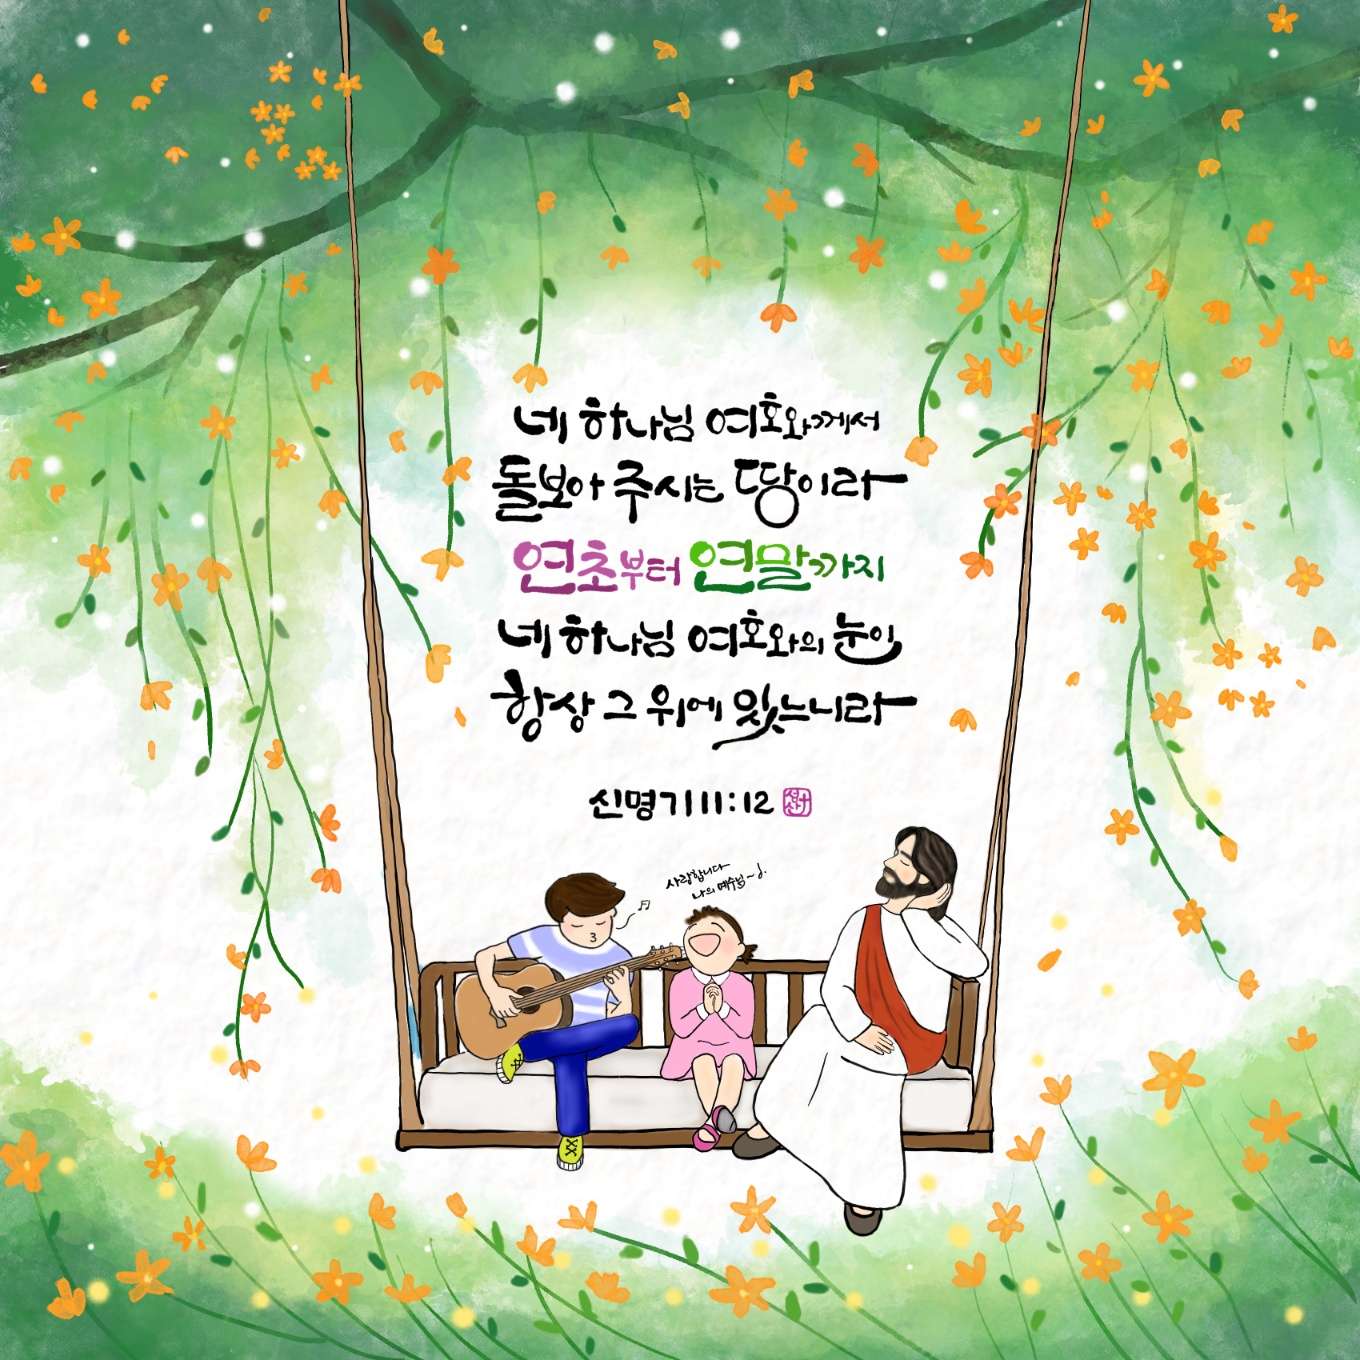 네 하나님 여호와께서
돌보아 주시는 땅이라
연초부터 연말까지
네 하나님 여호와의 눈이
항상 그 위에 있느니라
신명기 11:12
사랑합니다
나의 예수님~♪.